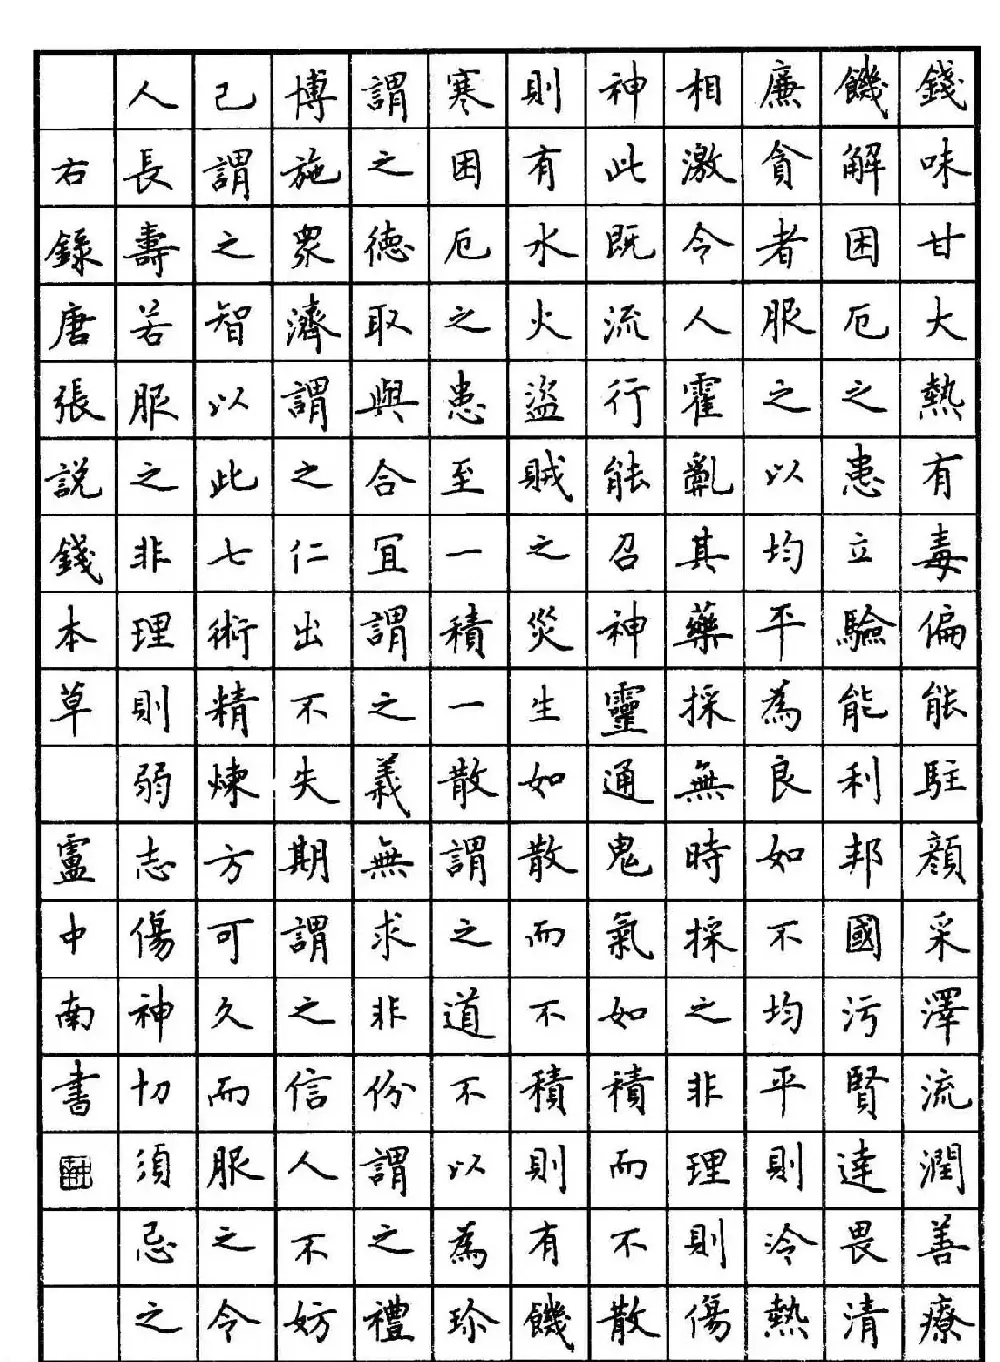 錢味甘大熱有毒偏能駐顏采澤流潤善療
饑解困厄之患立驗能利邦國污賢達畏清
廉貪者服之以均平為良如不均平則冷熱
相激令人霍亂其藥採無時採之非理則傷
神此既流行能召神靈通鬼氣如積而不散
則有水火盜賊之災生如散而不積則有饑
寒困厄之患至一積一散謂之道不以為珍
謂之德取與合宜謂之義無求非份謂之禮
博施眾濟謂之仁出不失期謂之信人不妨
己謂之智以此七術精煉方可久而服之令
人長壽若服之非理則弱志傷神切須忌之
右錄唐張說錢本草 盧中南書